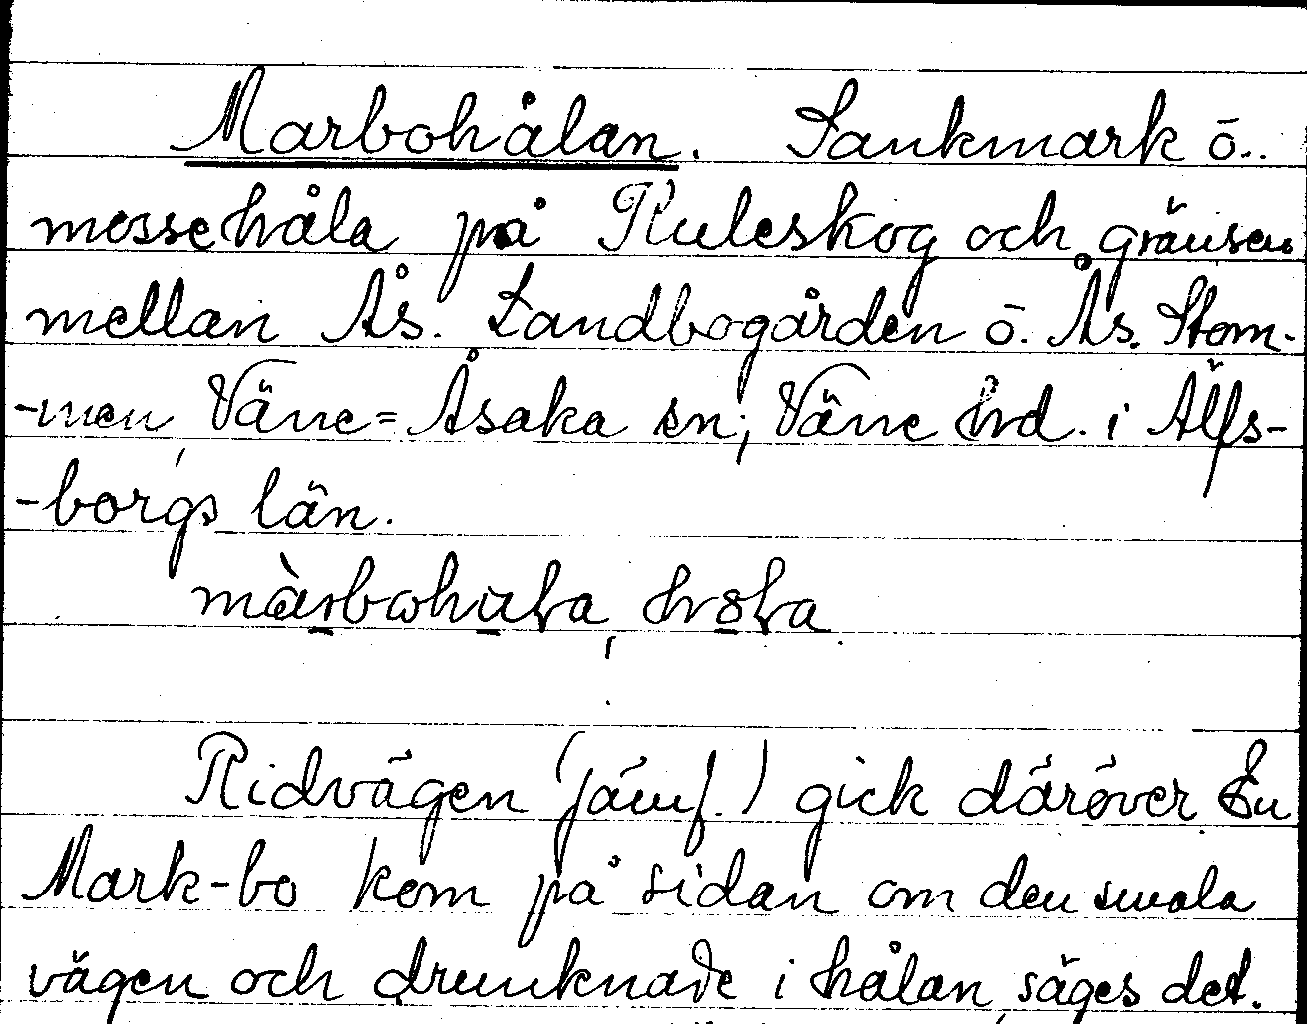 Marbohålan. Sankmark ö.
mossehåla på Ruleskog och gränsen
mellan Ås. Landbogården ö. Ås. Stom-
-men, Väne=Åsaka sn; Väne hrd. i Älfs-
-borgs län.
Ridvägen (jämf.) gick däröver. En
Mark-bo kom på sidan om den smala
vägen och drunknade i hålan, säges det.